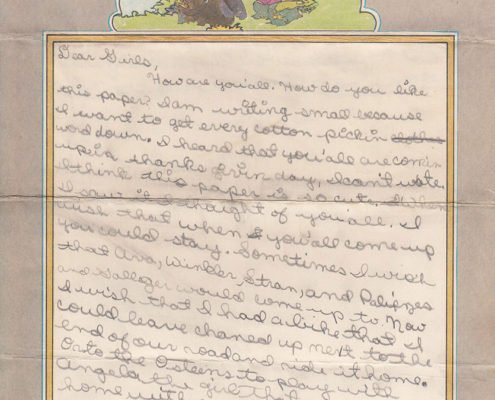 Dear Girls,
How are you'all. How do you like
this paper? I am writing small because
I want to get every cotton pickin
word down. I heard that you'all are comin
up in thanks givin day, I can't wate.
I think this paper is so cute. When
I saw it I thought of you'all. I
wish that when you'all come up
you could stay. Sometimes I wish
that Ava, Winkler, Stran, and
and would come up to. Now
I wish that I had a bike that I
could leave chaned up next to the
end of our road and ride it home.
Or to the Osteens to play with
Angela the girl that
home with